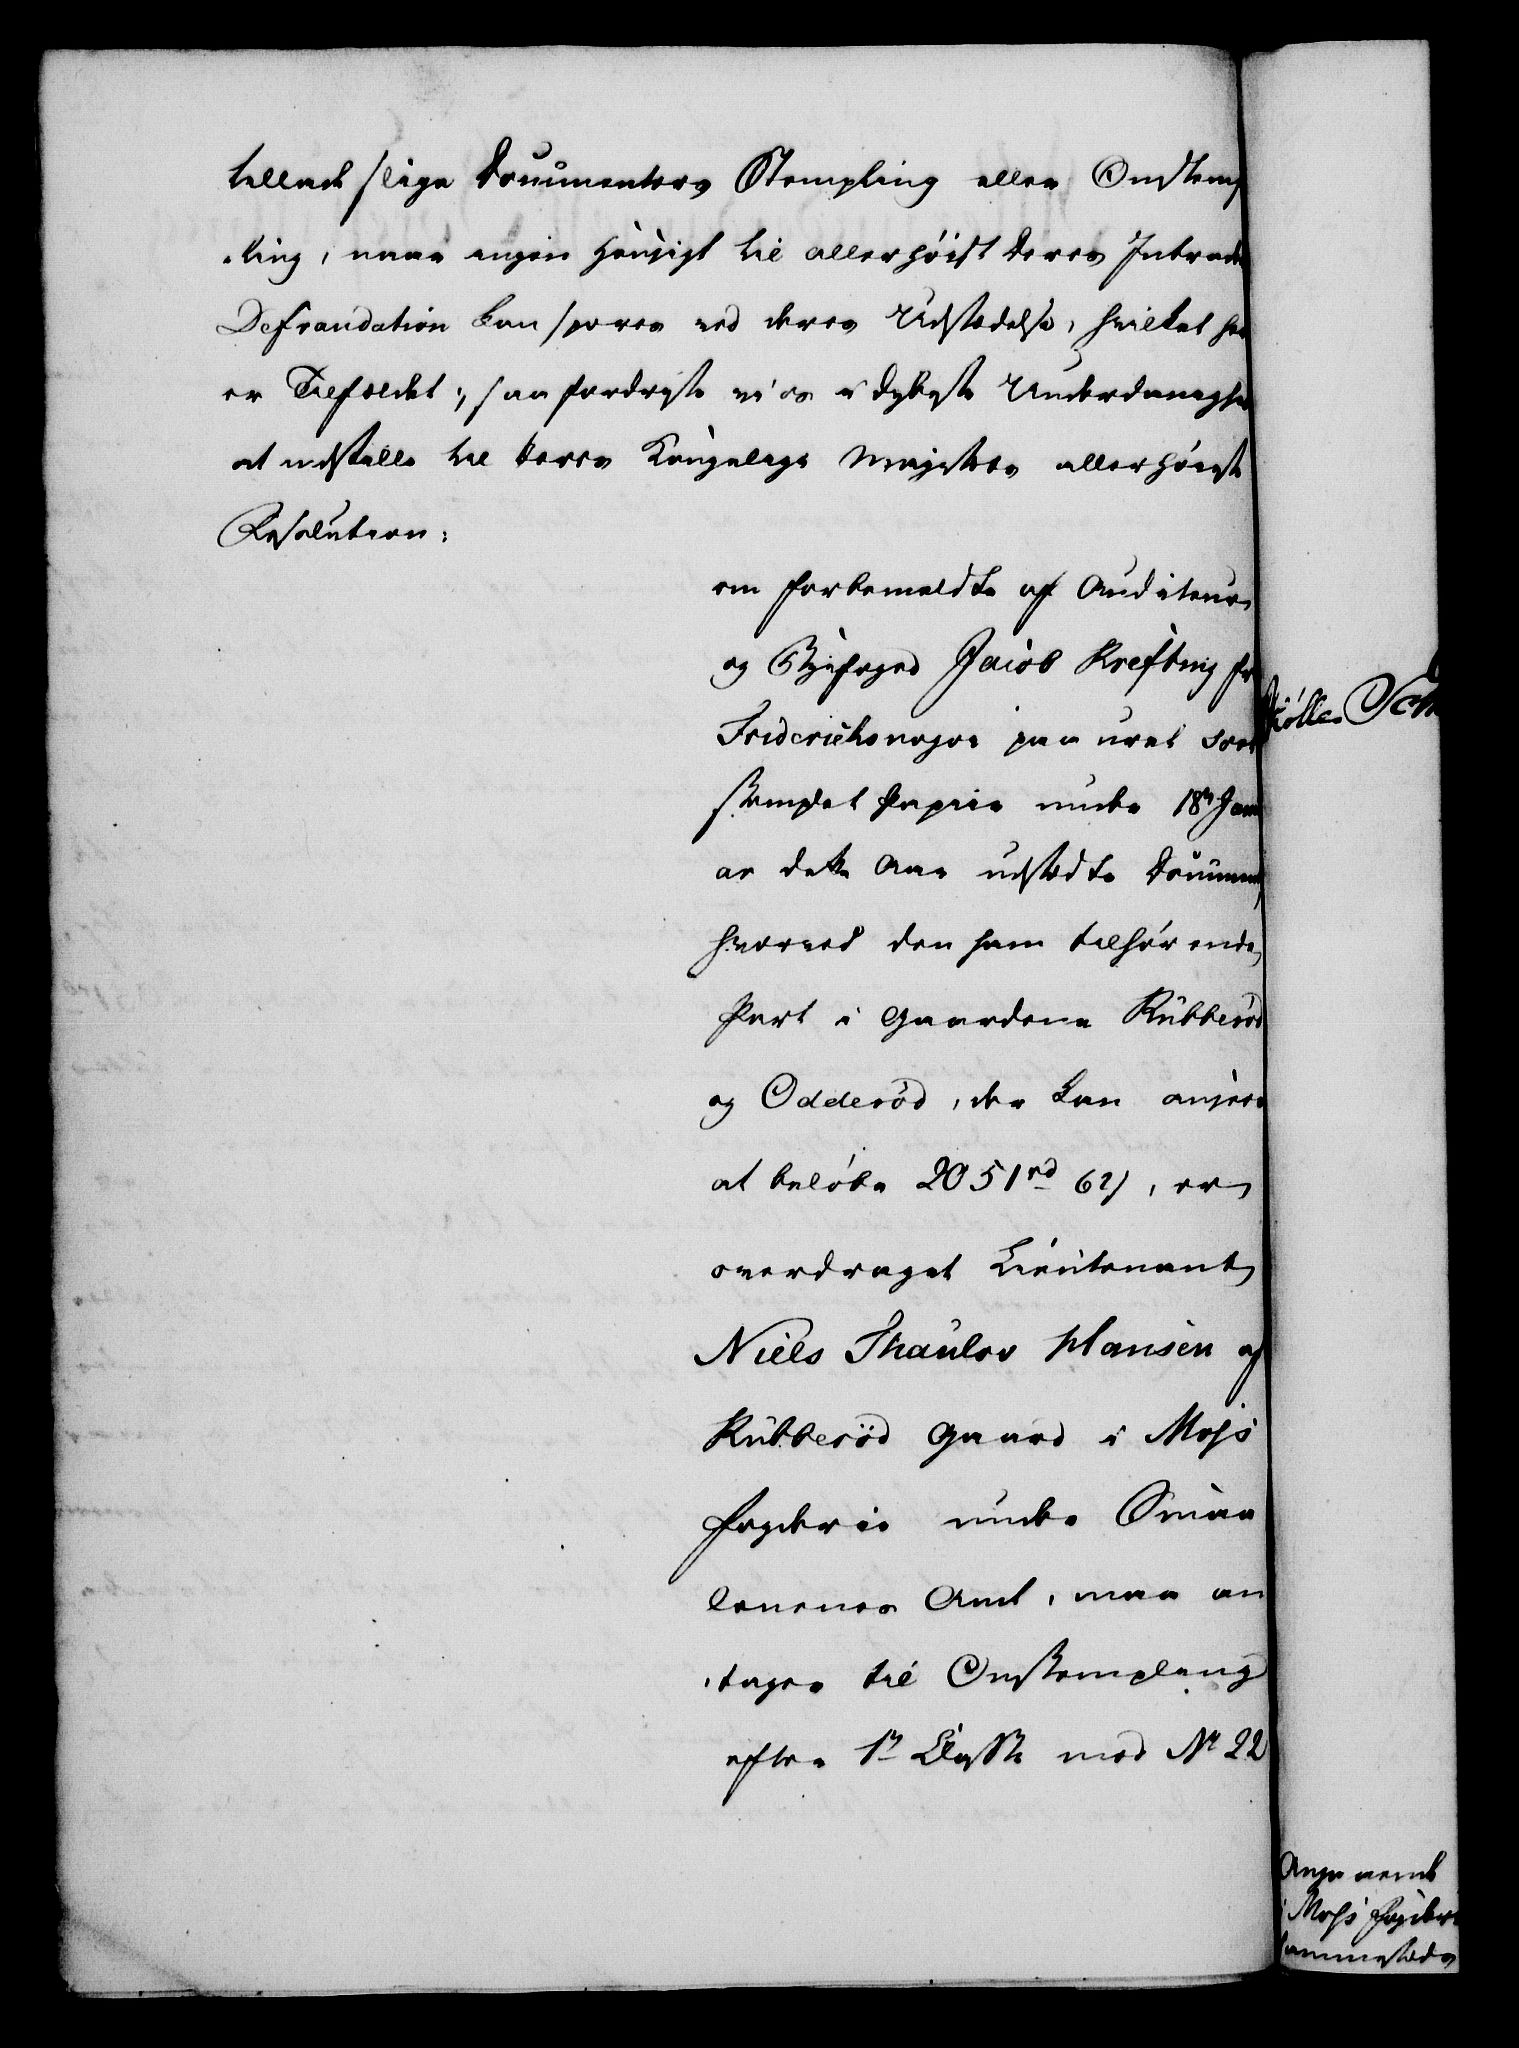 tilladt slige Documenters Stempling eller Omstemp
-ling, naar ingen Hensigt til allerhöist Deres Intrade
Defraudation kan spores ved deres Udstædelse, hvilket her
er Tilfældet; saa fordriste vi os i dybeste Underdanighed
at indstille til Deres Kongelige Majestets allerhöieste
Resolution:
om forbemeldte af Auditeur
og Byefoged Jacob Krefting for
Fridericksnagor paa uret
stemplet Papir under 18de Janu
ar dette Aar udstædte Document
hvorved den ham tilhörende
Part i Gaardene Kubberöd
og Odderöd, der kan ansees
at belöbe 2051 rd 62 s, er
overdraget Lieutenant
Niels Thaulov Hansen af
Kubberöd Gaard i Moss
Fogderie under Smaa
lenenes Amt, maa an
-tages til Omstempling
efter 1ste Classe med No 22
Möller
Ang
i Moss Fogderi
sammestæds